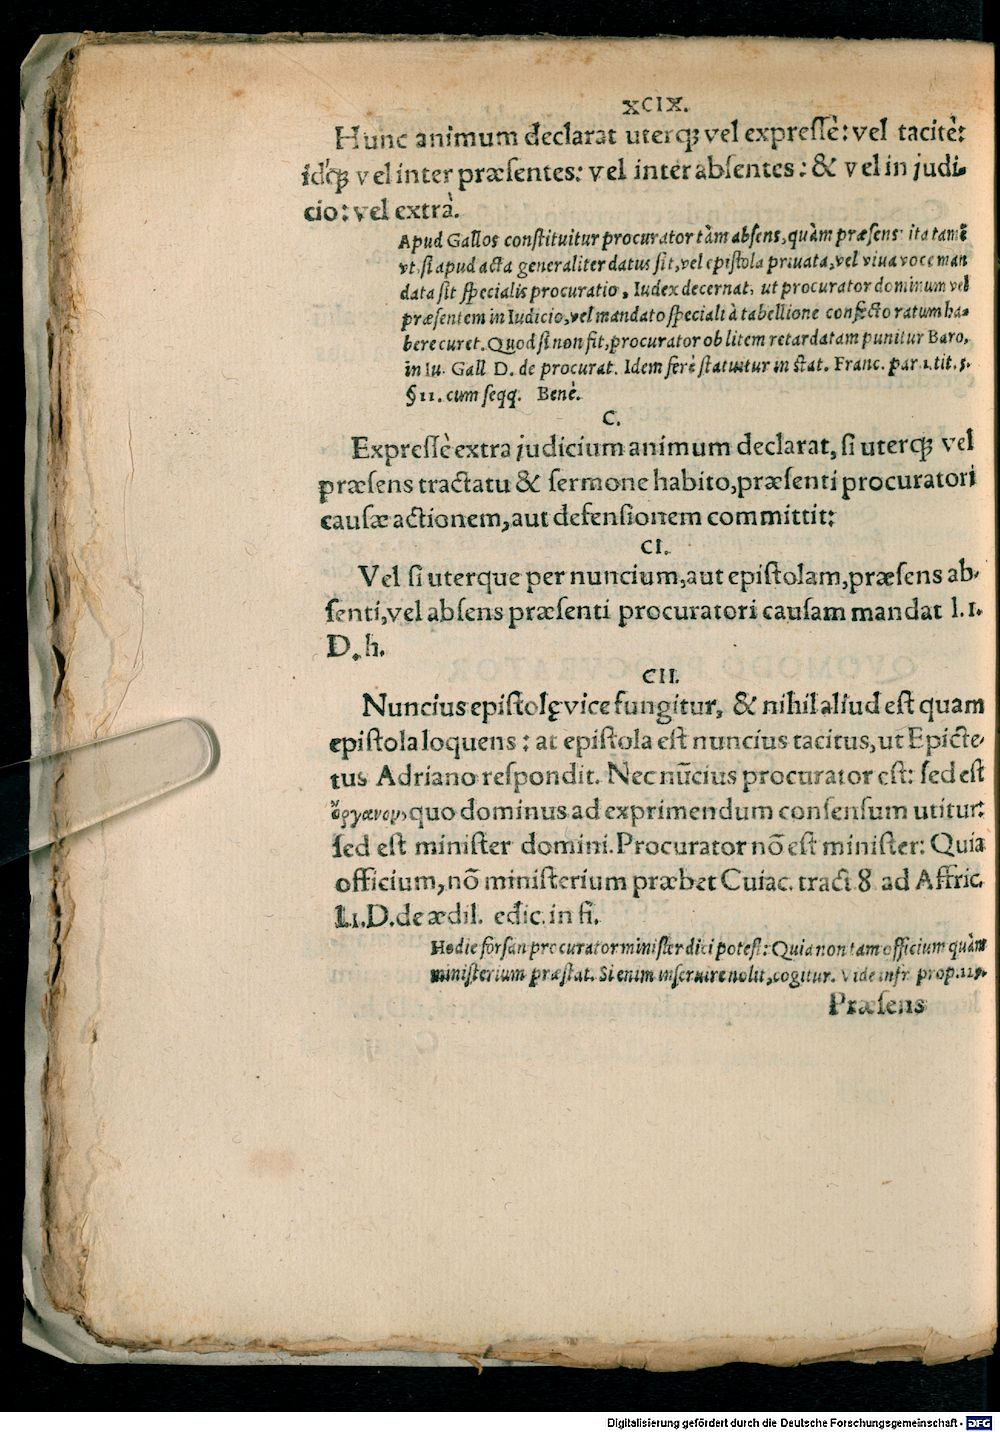 XCIX.
Hunc animum declarat uterq; vel expreſſè: vel tacitè:
idq́; vel inter præſentes: vel inter abſentes: & vel in judi-
cio: vel extrà.
Apud Gallos conſtituitur procurator tàm abſens, quàm præſens: ita tamẽ
vt, ſi apud acta generaliter datus ſit, vel epiſtola priuata, vel viua voce man
data ſit ſpecialis procuratio, Iudex decernat, ut procurator dominum vel
præſentem in Iudicio, vel mandato ſpeciali à tabellione confecto ratum ha-
bere curet. Quod ſi non fit, procurator ob litem retardatam punitur Baro,
in Iu. Gall D. de procurat. Idem ferè ſtatuitur in ſtat. Franc. par. 1. tit. 5.
§ 11. cum ſeqq. Benè.
C.
Expreſſè extra judicium animum declarat, ſi uterq; vel
præſens tractatu & ſermone habito, præſenti procuratori
cauſæ actionem, aut defenſionem committit:
CI.
Vel ſi uterque per nuncium, aut epiſtolam, præſens ab-
ſenti, vel abſens præſenti procuratori cauſam mandat l. 1.
D. h.
CII.
Nuncius epiſtolę vice fungitur, & nihil aliud eſt quam
epiſtola loquens: at epiſtola eſt nuncius tacitus, ut Epicte-
tus Adriano reſpondit. Nec nũcius procurator eſt: ſed eſt
ὄργανον, quo dominus ad exprimendum conſenſum utitur:
ſed eſt miniſter domini. Procurator nõ eſt miniſter: Quia
officium, nõ miniſterium præbet Cuiac. tract 8 ad Affric.
l. 1. D. de ædil. edic. in fi.
Hodie forſan procurator miniſter dici poteſt: Quia non tam officium quàm
miniſterium præſtat. Si enim inſeruire nolit, cogitur. Vide infr. prop.
Præſens
Digitalisierung gefördert durch die Deutsche Forschungsgemeinschaft - DFG